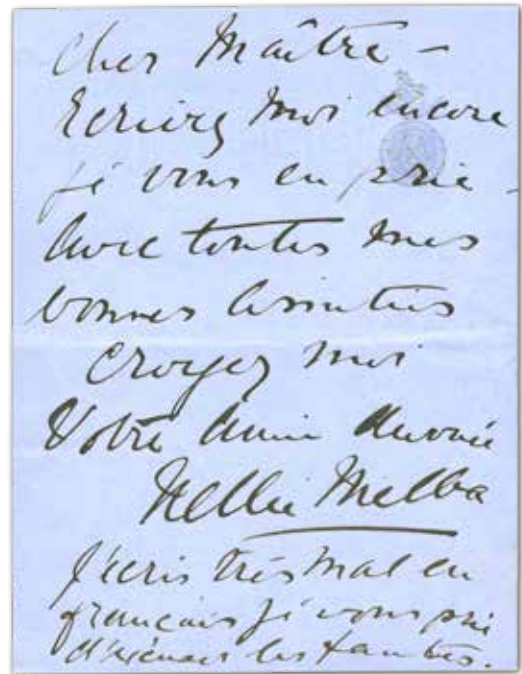 Cher Maître –
Ecrivez moi encore
je vous en prie –
Avec toutes mes
bonnes amitiés
Croyez moi
Votre amie devouée
Nellie Melba
J'écris très mal en
français je vous prie
d'excuser les fautes.